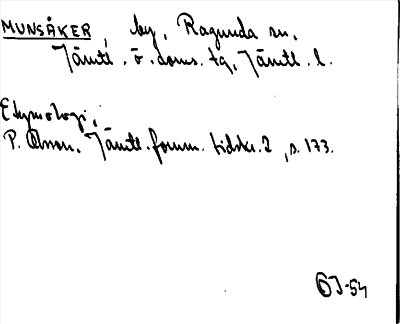 MUNSÅKER, by, Ragunda sn,
Jämtl. ö. doms. tg, Jämtl. l.
Etymologi:
P. Olsson. Jämtl. fornm. tidskr. 2, s. 173.
-54